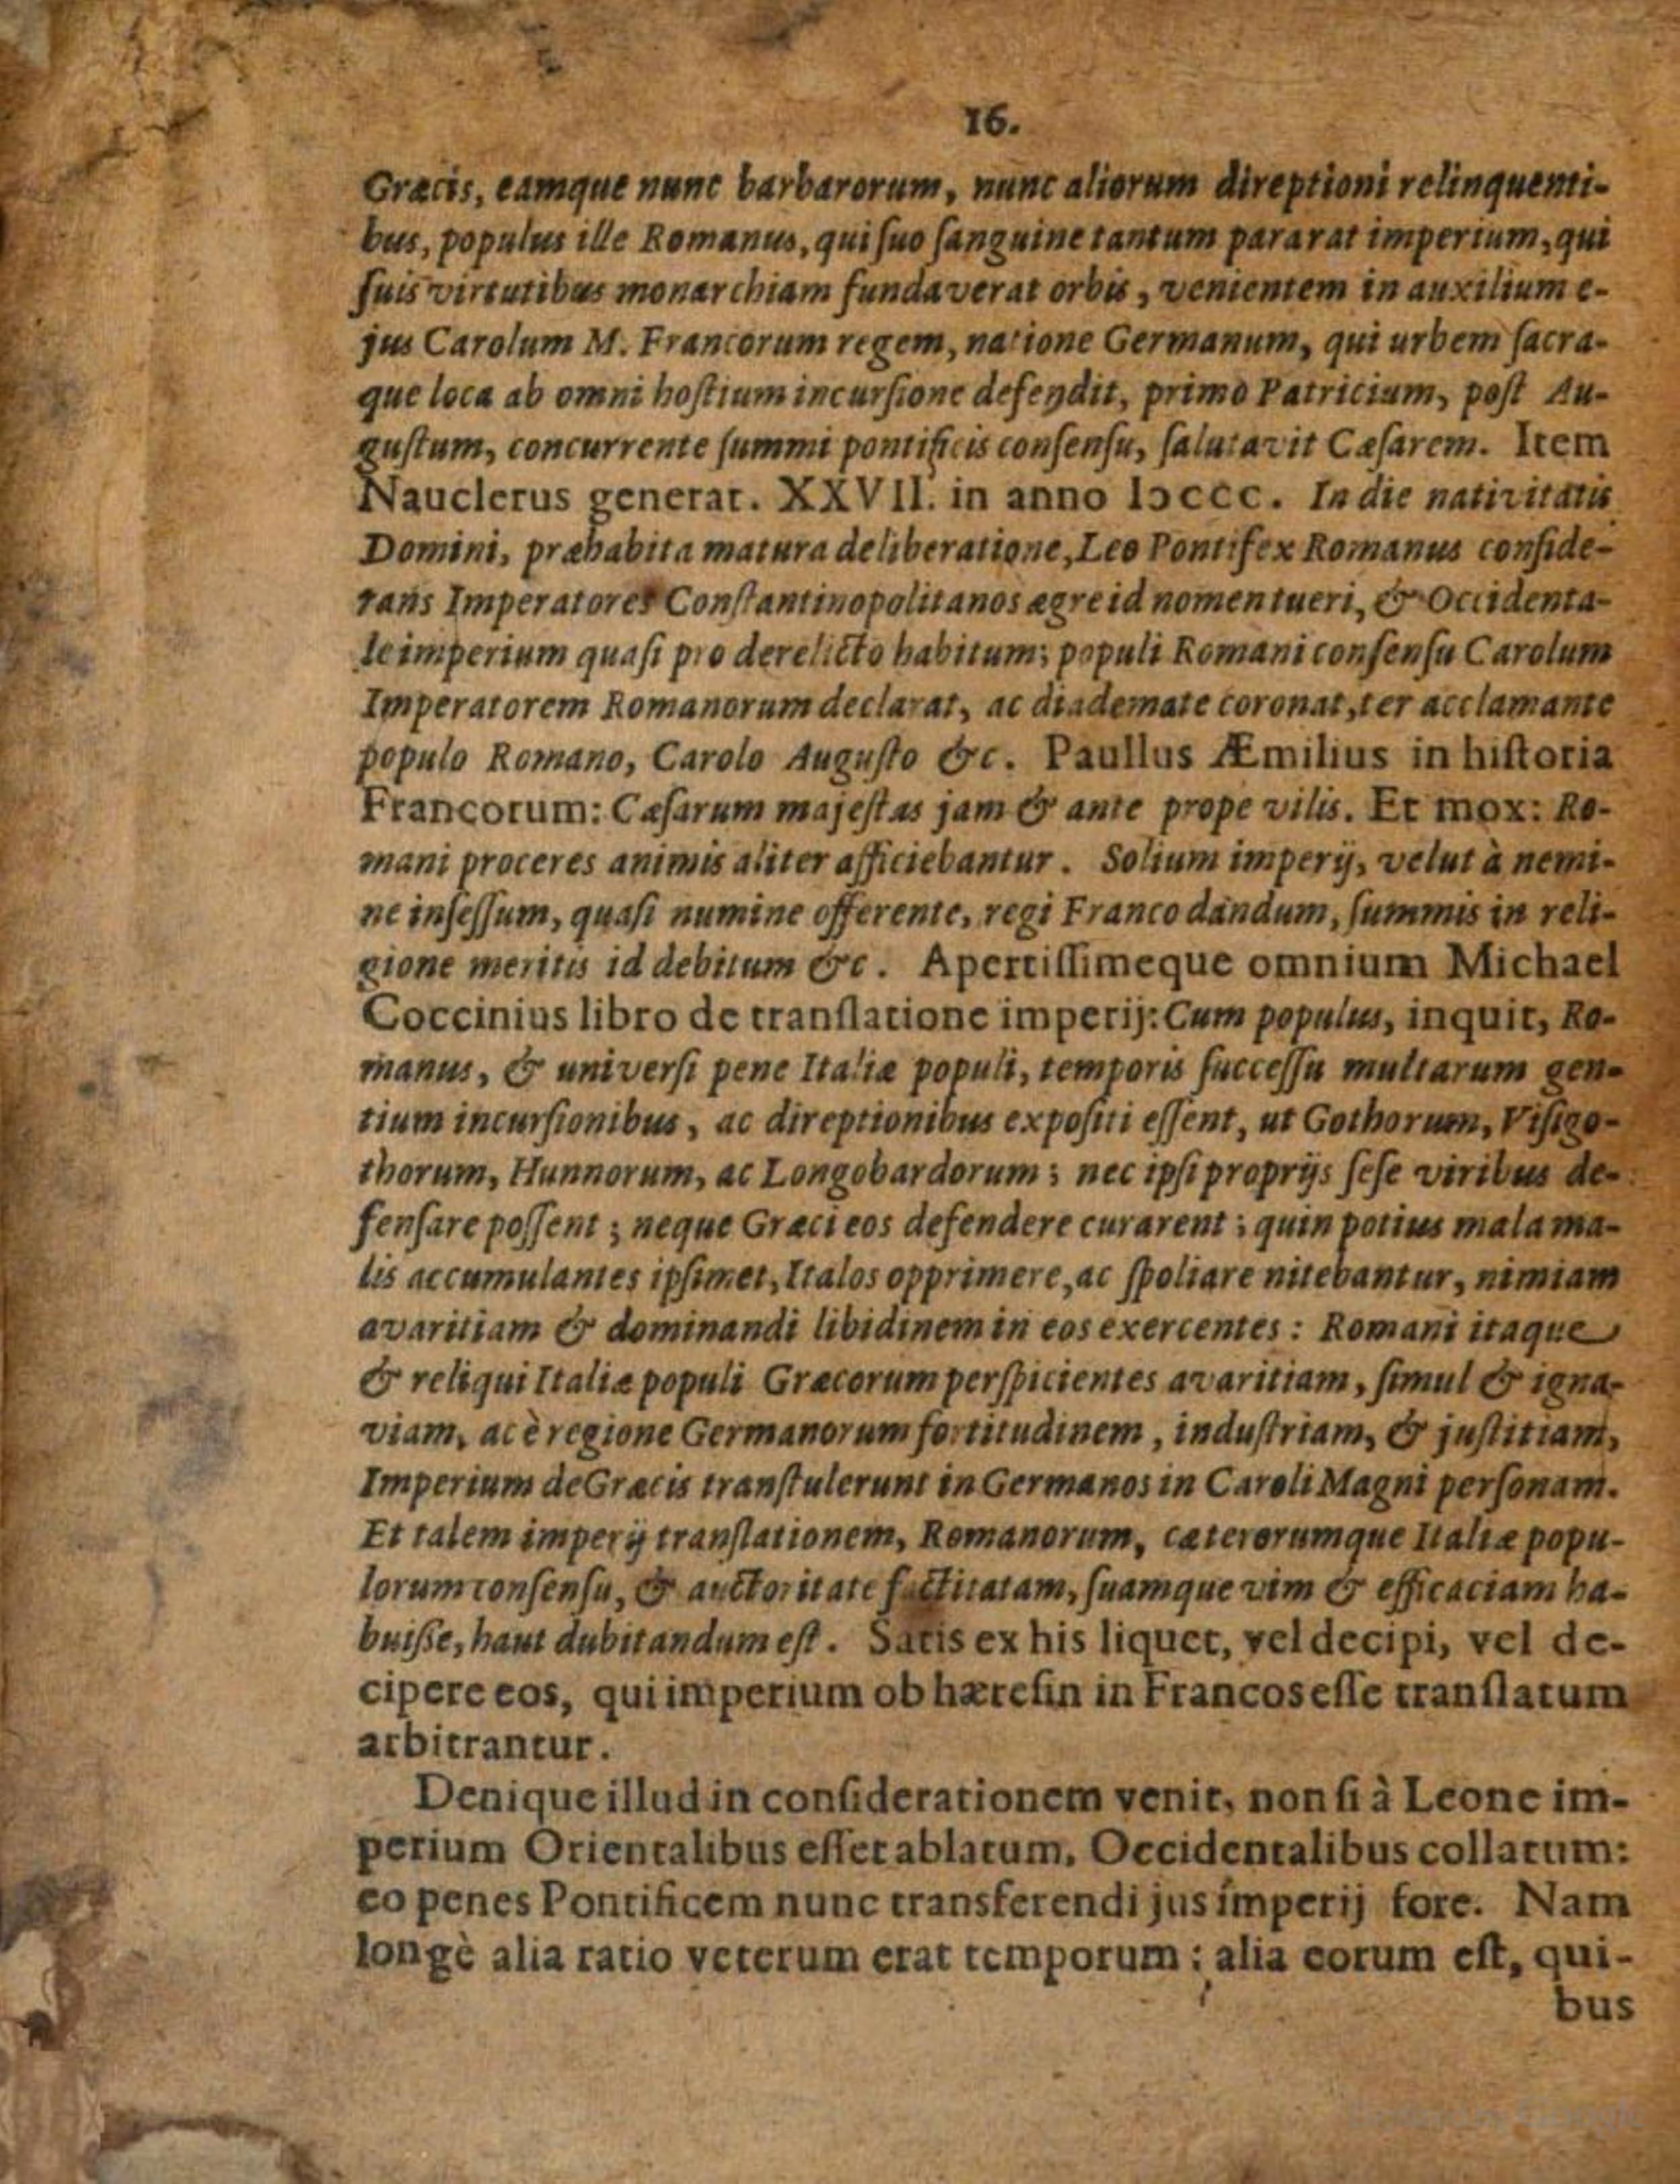 16.
Græcis, eamque nunc barbarorum, nunc aliorum direptioni relinquenti-
bus, populus ille Romanus, qui ſuo ſanguine tantum pararat imperium, qui
ſuis virtutibus monarchiam fundaverat orbis, venientem in auxilium e-
jus Carolum M. Francorum regem, natione Germanum, qui urbem ſacra-
que loca ab omni hoſtium incurſione defendit, primo Patricium, poſt Au-
guſtum, concurrente ſummi pontificis conſenſu, ſalutavit Cæſarem. Item
Nauclerus generat. XXVII. in anno Iↄccc. In die nativitatis
Domini, præhabita matura deliberatione, Leo Pontifex Romanus conſide-
rans Imperatores Conſtantinopolitanos ægre id nomen tueri, & Occidenta-
le imperium quaſi pro derelicto habitum; populi Romani conſenſu Carolum
Imperatorem Romanorum declarat, ac diademate coronat, ter acclamante
populo Romano, Carolo Auguſto &c. Paullus Æmilius in hiſtoria
Francorum: Cæſarum majeſtas jam & ante prope vilis. Et mox: Ro-
mani proceres animis aliter afficiebantur. Solium imperij, velut à nemi-
ne inſeſſum, quaſi numine offerente, regi Franco dandum, ſummis in reli-
gione meritis id debitum &c. Apertiſſimeque omnium Michael
Coccinius libro de tranſlatione imperij: Cum populus, inquit, Ro-
manus, & univerſi pene Italiæ populi, temporis ſucceſſu multarum gen-
tium incurſionibus, ac direptionibus expoſiti eſſent, ut Gothorum, Viſigo-
thorum, Hunnorum, ac Longobardorum; nec ipſi proprijs ſeſe viribus de-
fenſare poſſent; neque Græci eos defendere curarent; quin potius mala ma-
lis accumulantes ipſimet, Italos opprimere, ac ſpoliare nitebantur, nimiam
avaritiam & dominandi libidinem in eos exercentes: Romani itaque
& reliqui Italiæ populi Græcorum perſpicientes avaritiam, ſimul & igna-
viam, ac è regione Germanorum fortitudinem, induſtriam, & juſtitiam,
Imperium de Græcis tranſtulerunt in Germanos in Caroli Magni perſonam.
Et talem imperij tranſlationem, Romanorum, cæterorumque Italiæ popu-
lorum conſenſu, & auctoritate factitatam, ſuamque vim & efficaciam ha-
buiſſe, haut dubitandum eſt. Satis ex his liquet, vel decipi, vel de-
cipere eos, qui imperium ob hæreſin in Francos eſſe tranſlatum
arbitrantur.
Denique illud in conſiderationem venit, non ſi à Leone im-
perium Orientalibus eſſet ablatum, Occidentalibus collatum:
eo penes Pontificem nunc transferendi jus imperij fore. Nam
longè alia ratio veterum erat temporum; alia eorum eſt, qui-
bus